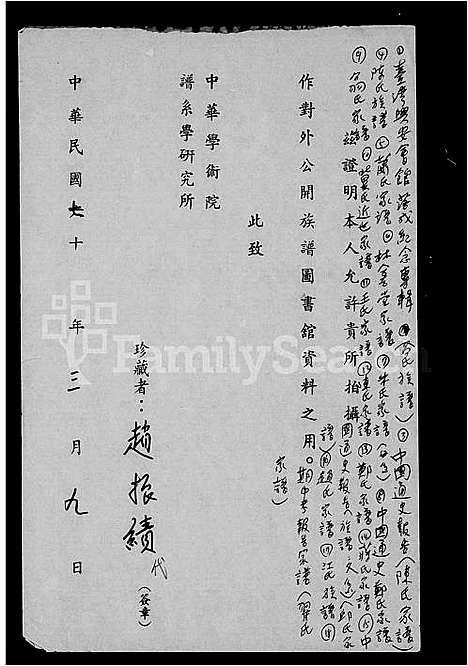 ①臺灣興安會館落成紀念專輯 ②余氏族譜) ③中國通史報告(陳氏家譜)
④陳氏族譜 ⑤蕭氏家譜 ⑥林金堂家譜 ⑦朱氏家譜 ⑧中國通史鄭氏家譜
⑨翁氏家譜 ⑩葉氏近世家譜 ⑪王氏家譜 ⑫莫氏家譜 ⑬鄭氏家譜 ⑭蔣氏家譜 ⑮中
國通史報告(族譜)邱氏家
譜) ⑯趙氏家譜 ⑰江氏族譜 ⑱
期中考報告家譜(羿氏
家譜)
茲證明本人允許貴所拍攝
作對外公開族譜圖書館資料之用。
此致
中華學術院
譜系學研究所
珍藏者:趙振績代(簽章)
中華民國七十年三月九日
FamilySearch